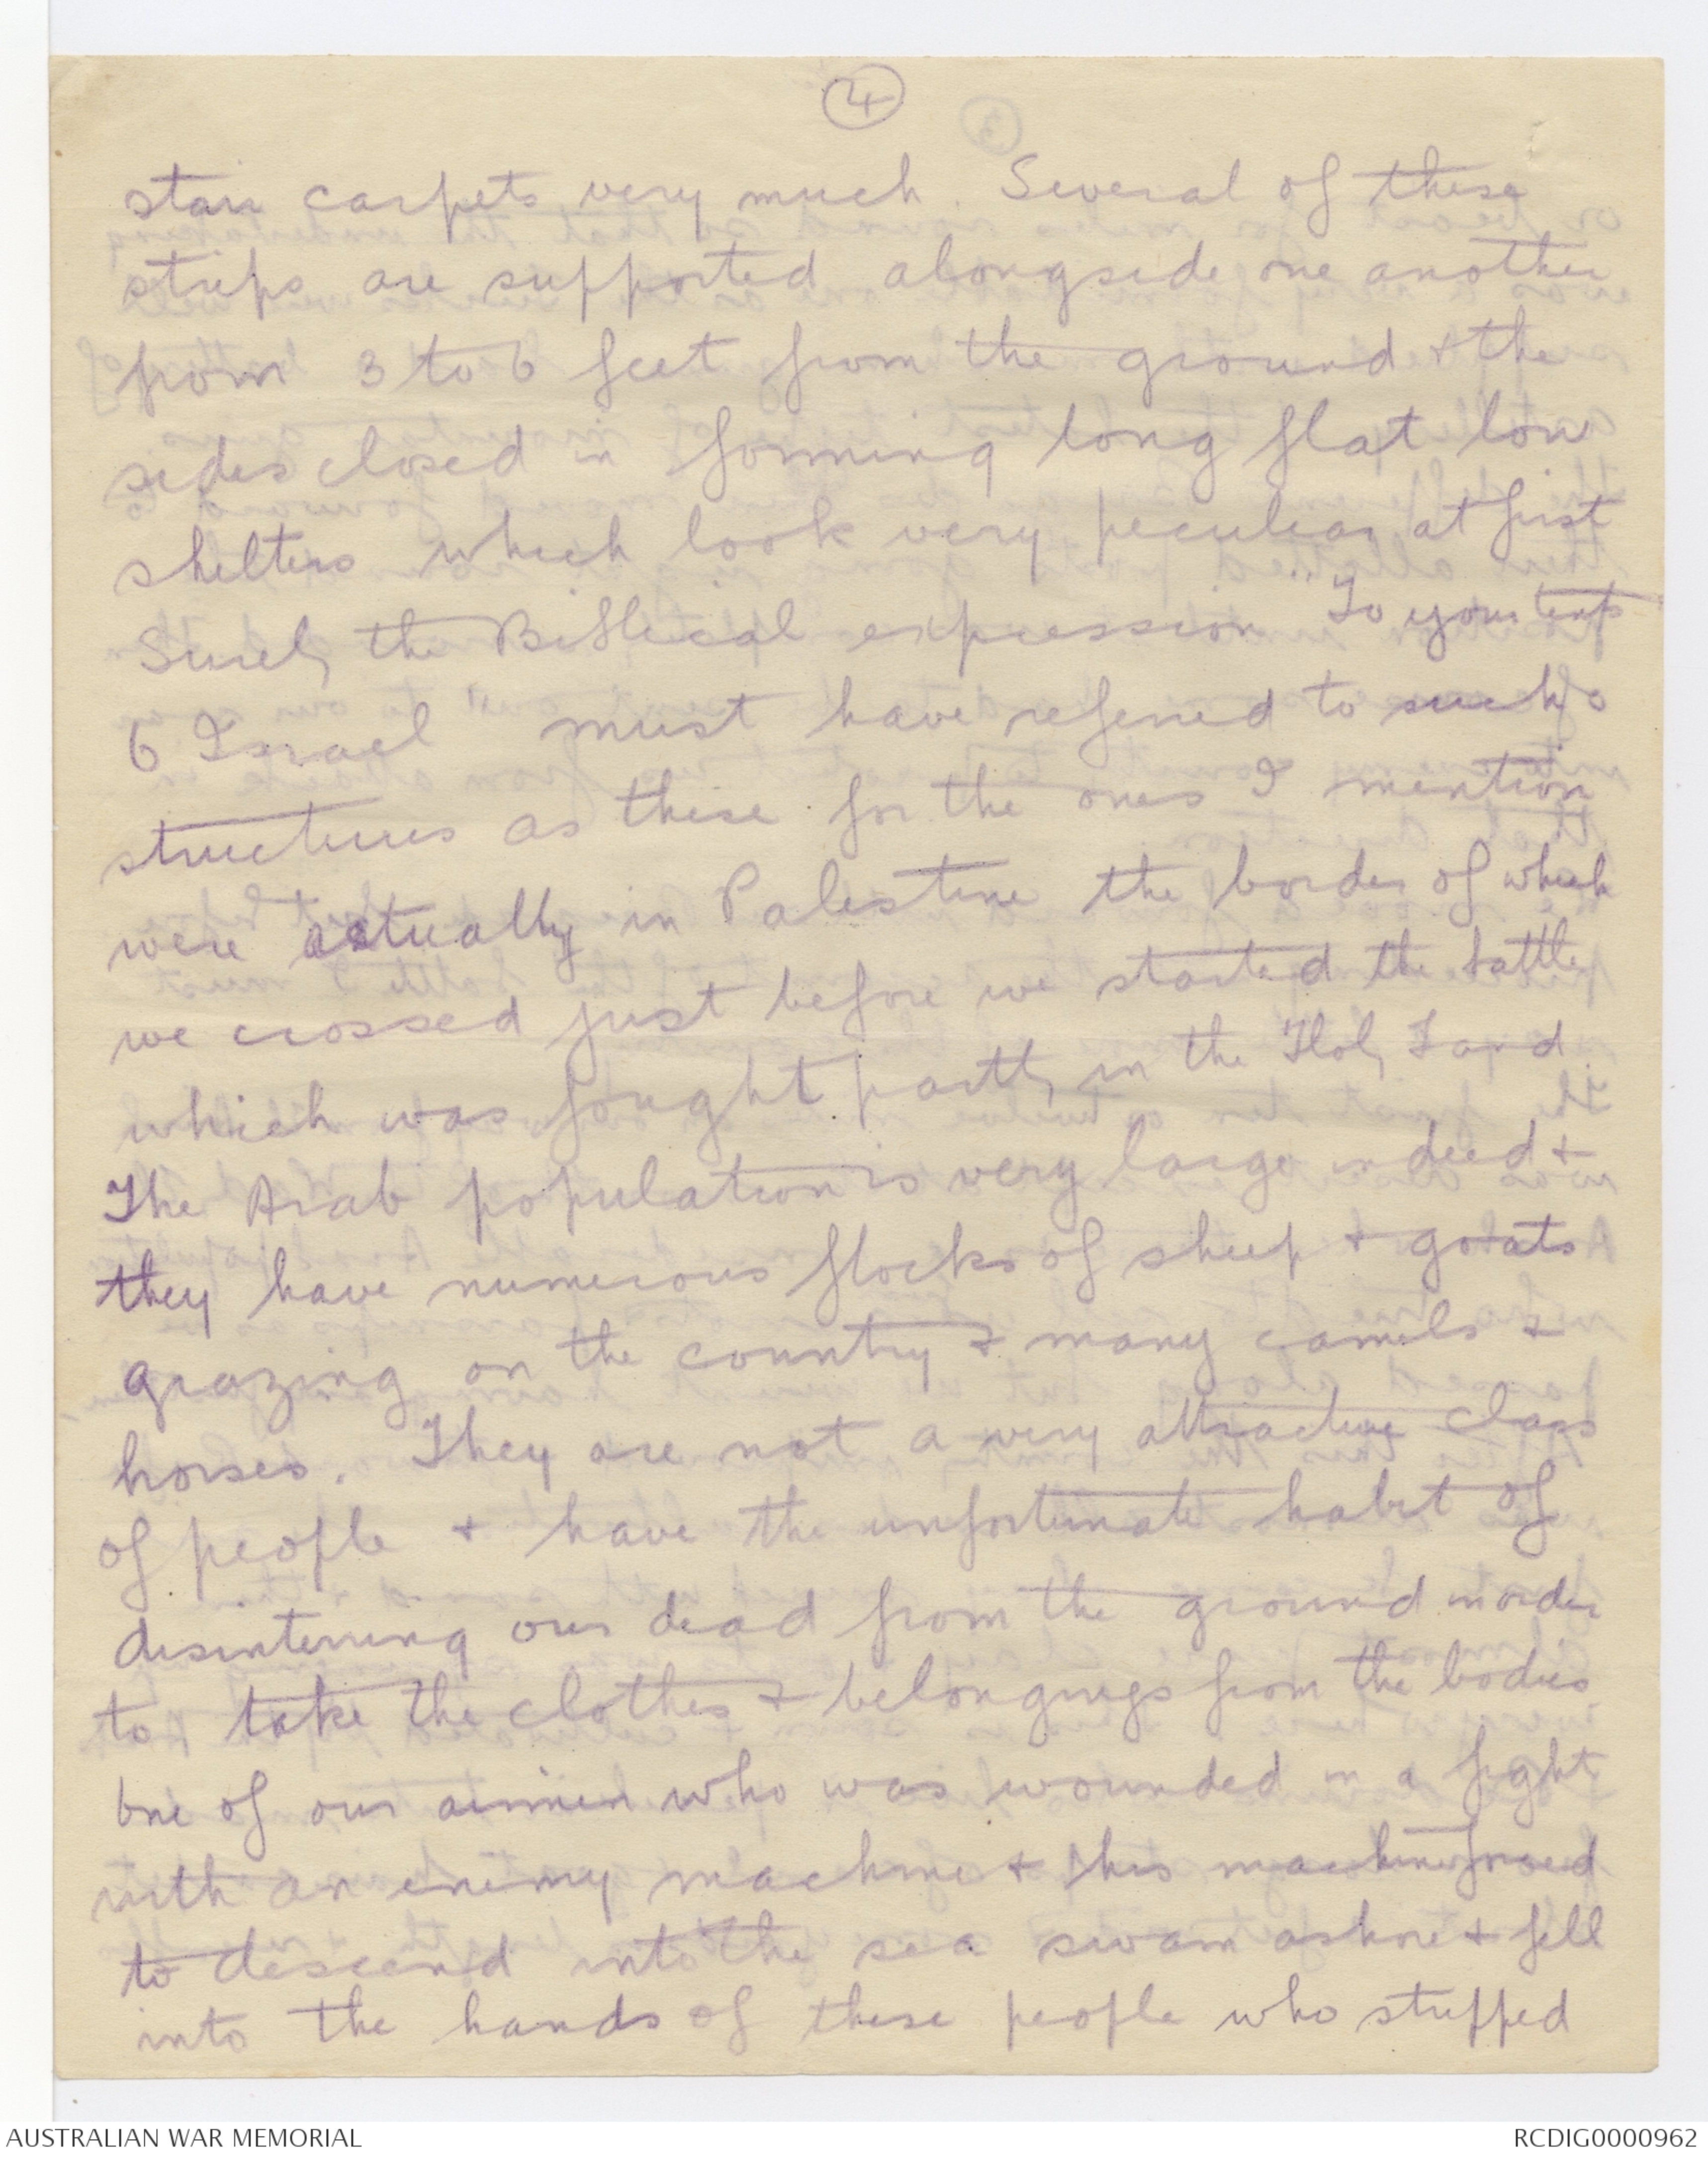 4
stair carpets very much. Several of these
strips are supported alongside one another
from 3 to 6 feet from the ground & the
sides closed in forming long flat low
shelters which look very peculiar at first
Surely the Biblical expression "To your tents
O Israel" must have referred to such
structures as these for the ones I mention
were actually in Palestine the border of which
we crossed just before we started the battle
which was fought partly in the Holy Land.
The Arab population is very large indeed &
they have numerous flocks of sheep & goats
grazing on the country & many camels &
horses. They are not a very attractive class
of people & have the unfortunate habit of
disinterring our dead from the ground in order
to take the clothes & belongings from the bodies.
One of our airmen who was wounded in a fight
with an enemy machine & his machine forced
to descend into the sea swam ashore & fell
into the hands of these people who stripped
AUSTRALIAN WAR MEMORIAL
RCDIG0000962